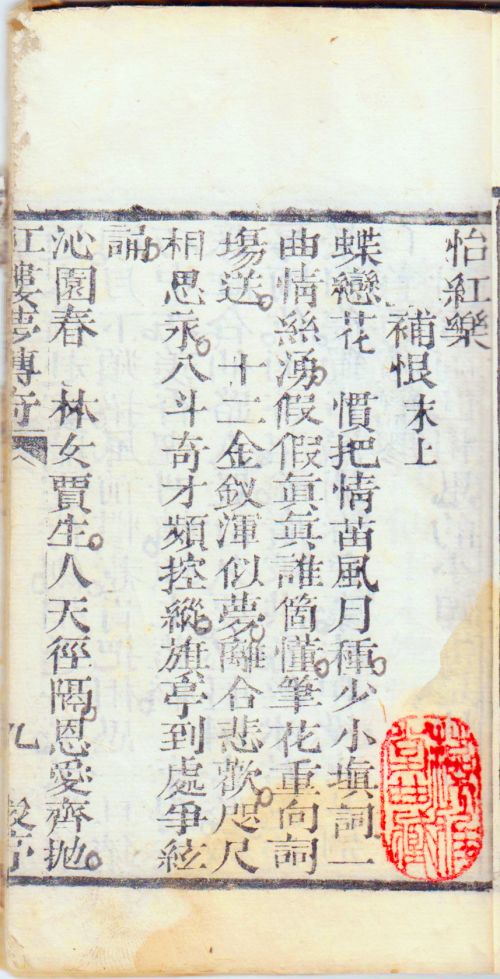 怡紅樂
補恨 末上
蝶戀花　慣把情苗風月種。少小塡詞一
曲情絲湧。假假眞眞誰箇懂。筆花重向詞
塲送。　十二金釵渾似夢。離合悲歡。咫尺
相思永。八斗奇才頻控縱。旗亭到處爭絃
誦。
沁園春　林女賈生。人天徑隔。恩愛齊抛。
紅樓夢傳奇　九